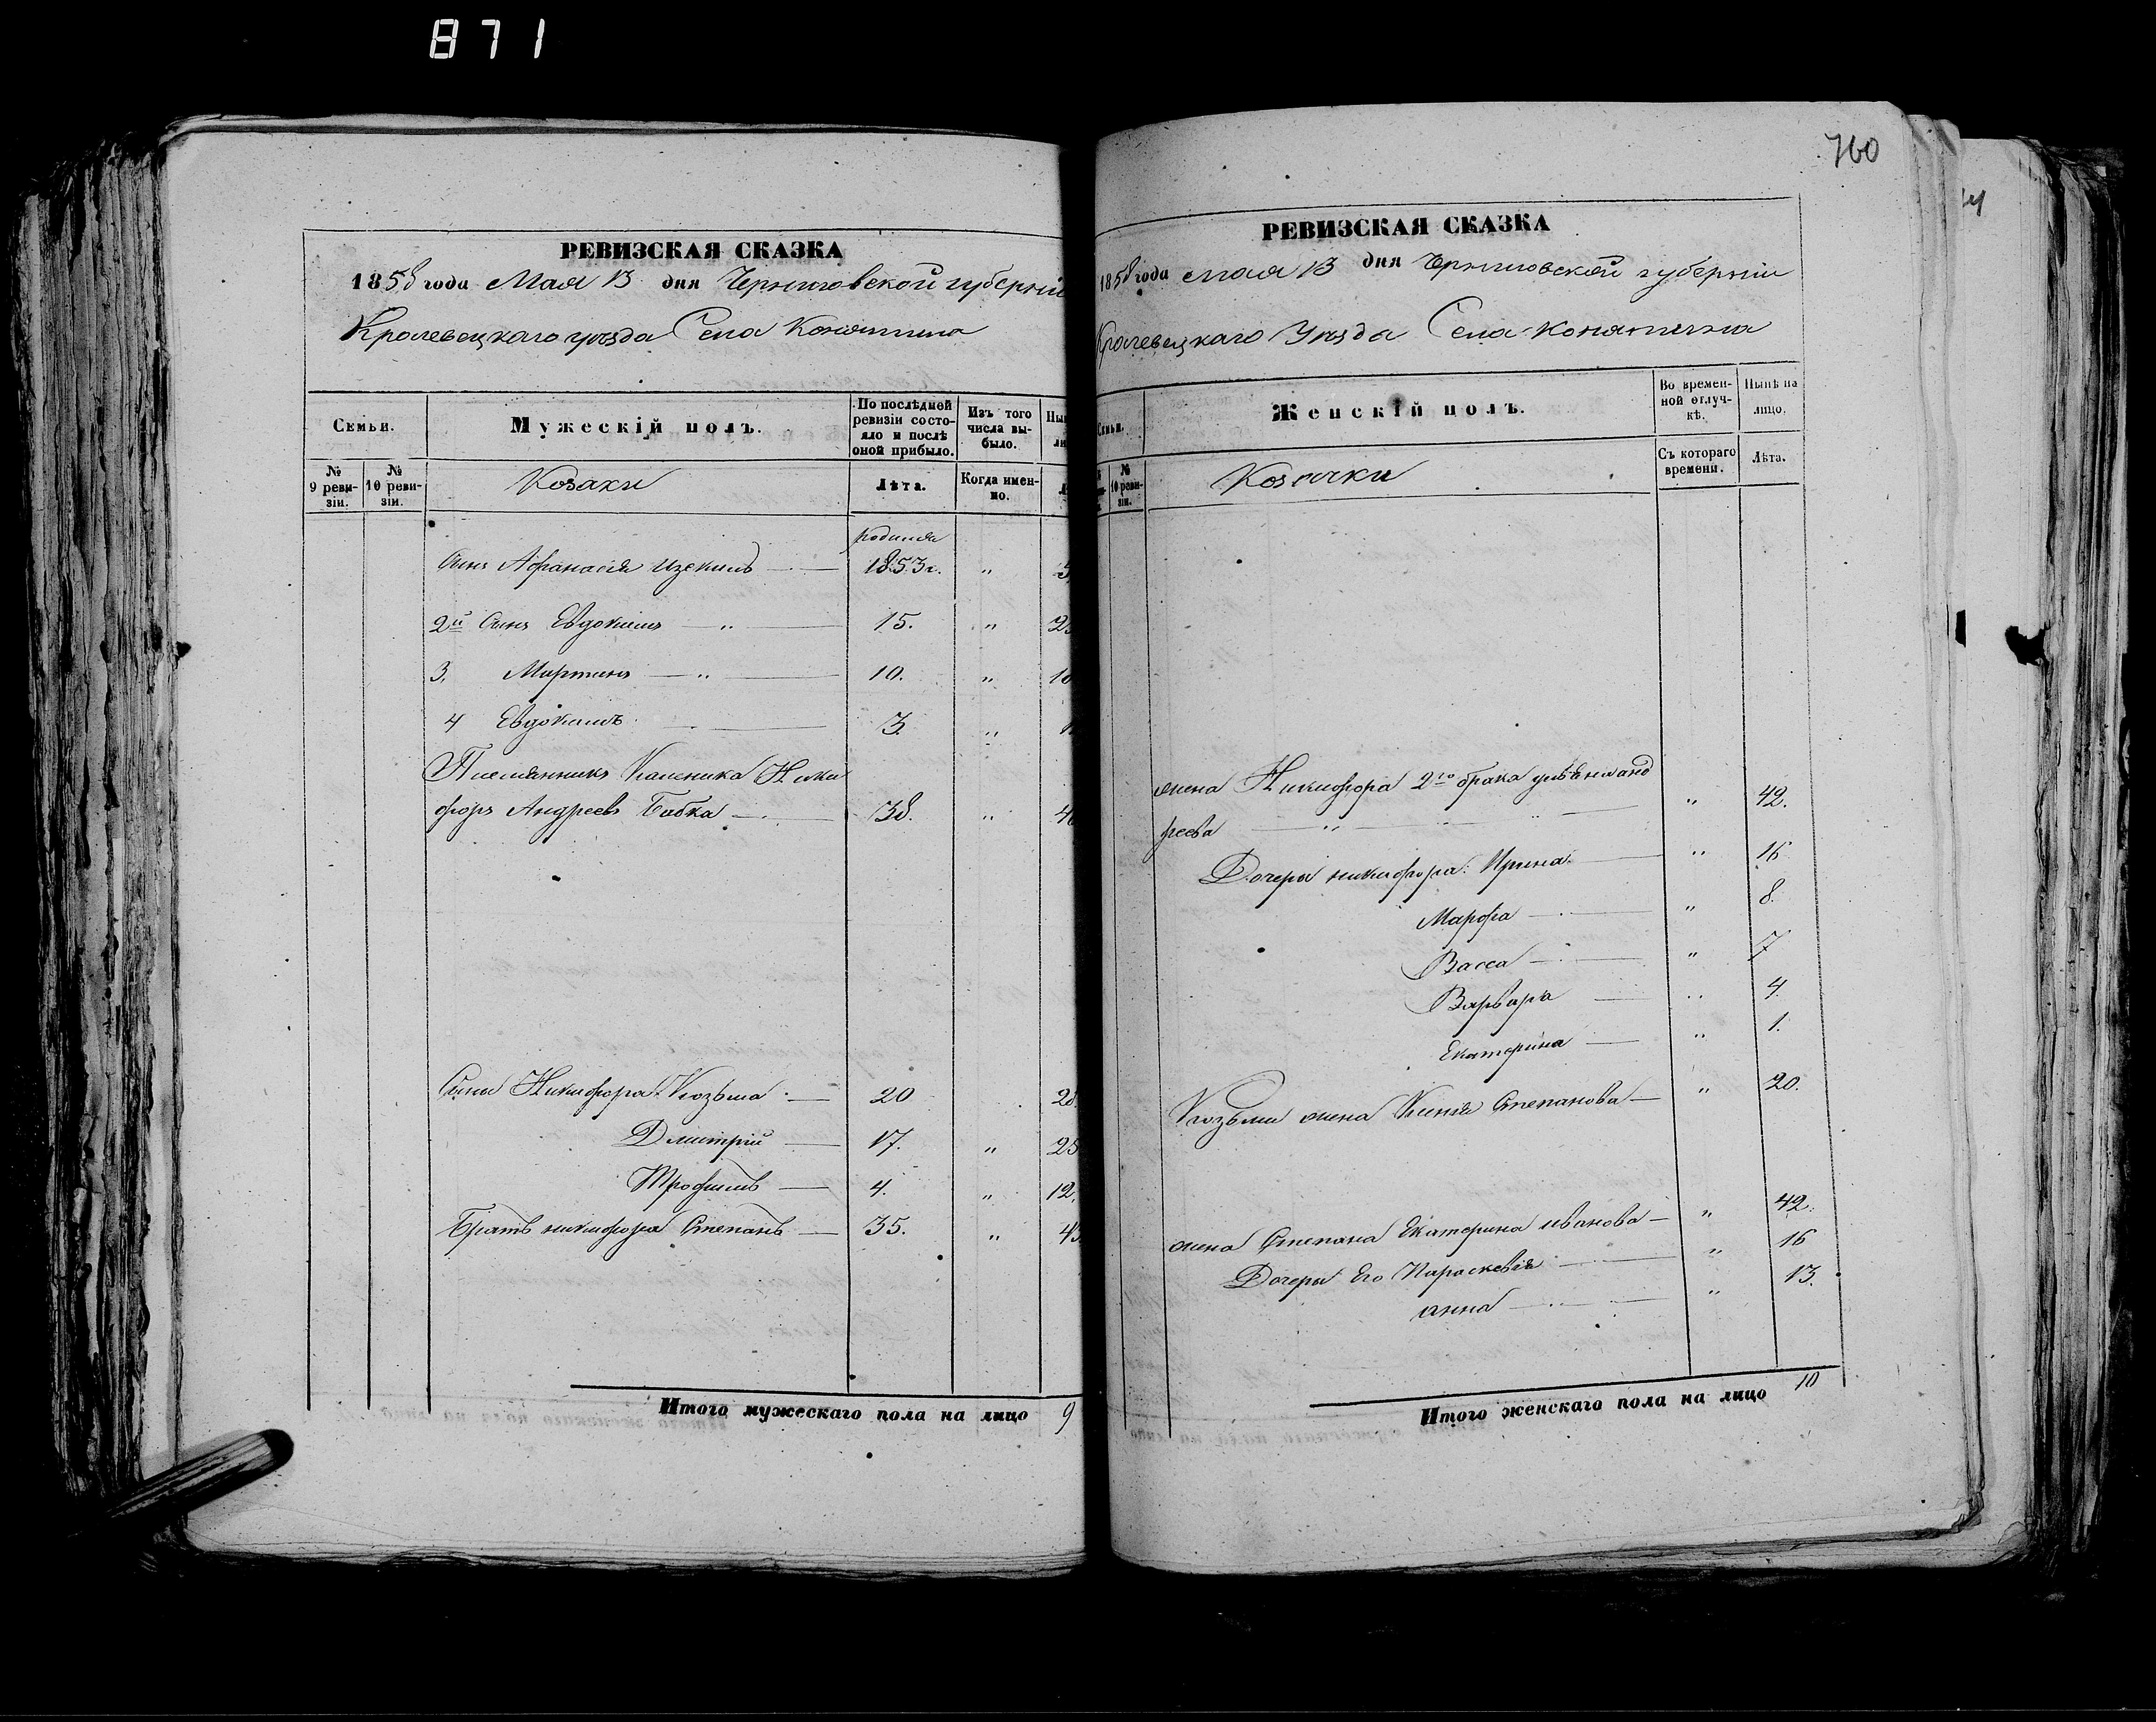 871
РЕВИЗСКАЯ СКАЗКА
1858 года Мая 13 дня Черниговской губерніи
Кролевецкаго уѣзда Села Конятина
Семьи.
Мужескій полъ.
По послѣдней ревизіи состояло и послѣ оной прибыло.
Изъ того числа выбыло.
№ 9 ревизіи.
№ 10 ревизіи.
Козаки
Лѣта.
Когда именно.
родился
Сынъ Афанасія 1853 г. "
2й Сынъ Евдокимъ " 15. "
3. Мартинъ " 10. " 18
4 Евдокимъ 3. "
Племянникъ Каленика Ники
форъ Андреевъ Бабка 38. "
Сыны Никифора: Козьма 20 28
Дмитрій 17. " 25
Трофимъ 4. " 12.
Братъ никифора Степанъ 35. " 43
Итого мужескаго пола на лицо 9
760
РЕВИЗСКАЯ СКАЗКА
1858 года мая 13 дня Черниговской губерніи
Кролевецкаго Уѣзда Села Конятина
Женскій полъ.
Во временной отлучкѣ.
Нынѣ на лицо.
№ 10 ревизіи.
Козачки
Съ котораго времени.
Лѣта.
жена Никифора 2го брака ульяна анд
реева " " 42.
Дочери никифора: Ирина " 16
Марфа " 8.
Васса " 7
Варвара " 4.
Екатерина " 1.
Козьми жена Ксенія Степанова " 20.
жена Степана Екатерина иванова " 42.
Дочери Его Параскевія " 16
анна " 13.
Итого женскаго пола на лицо 10